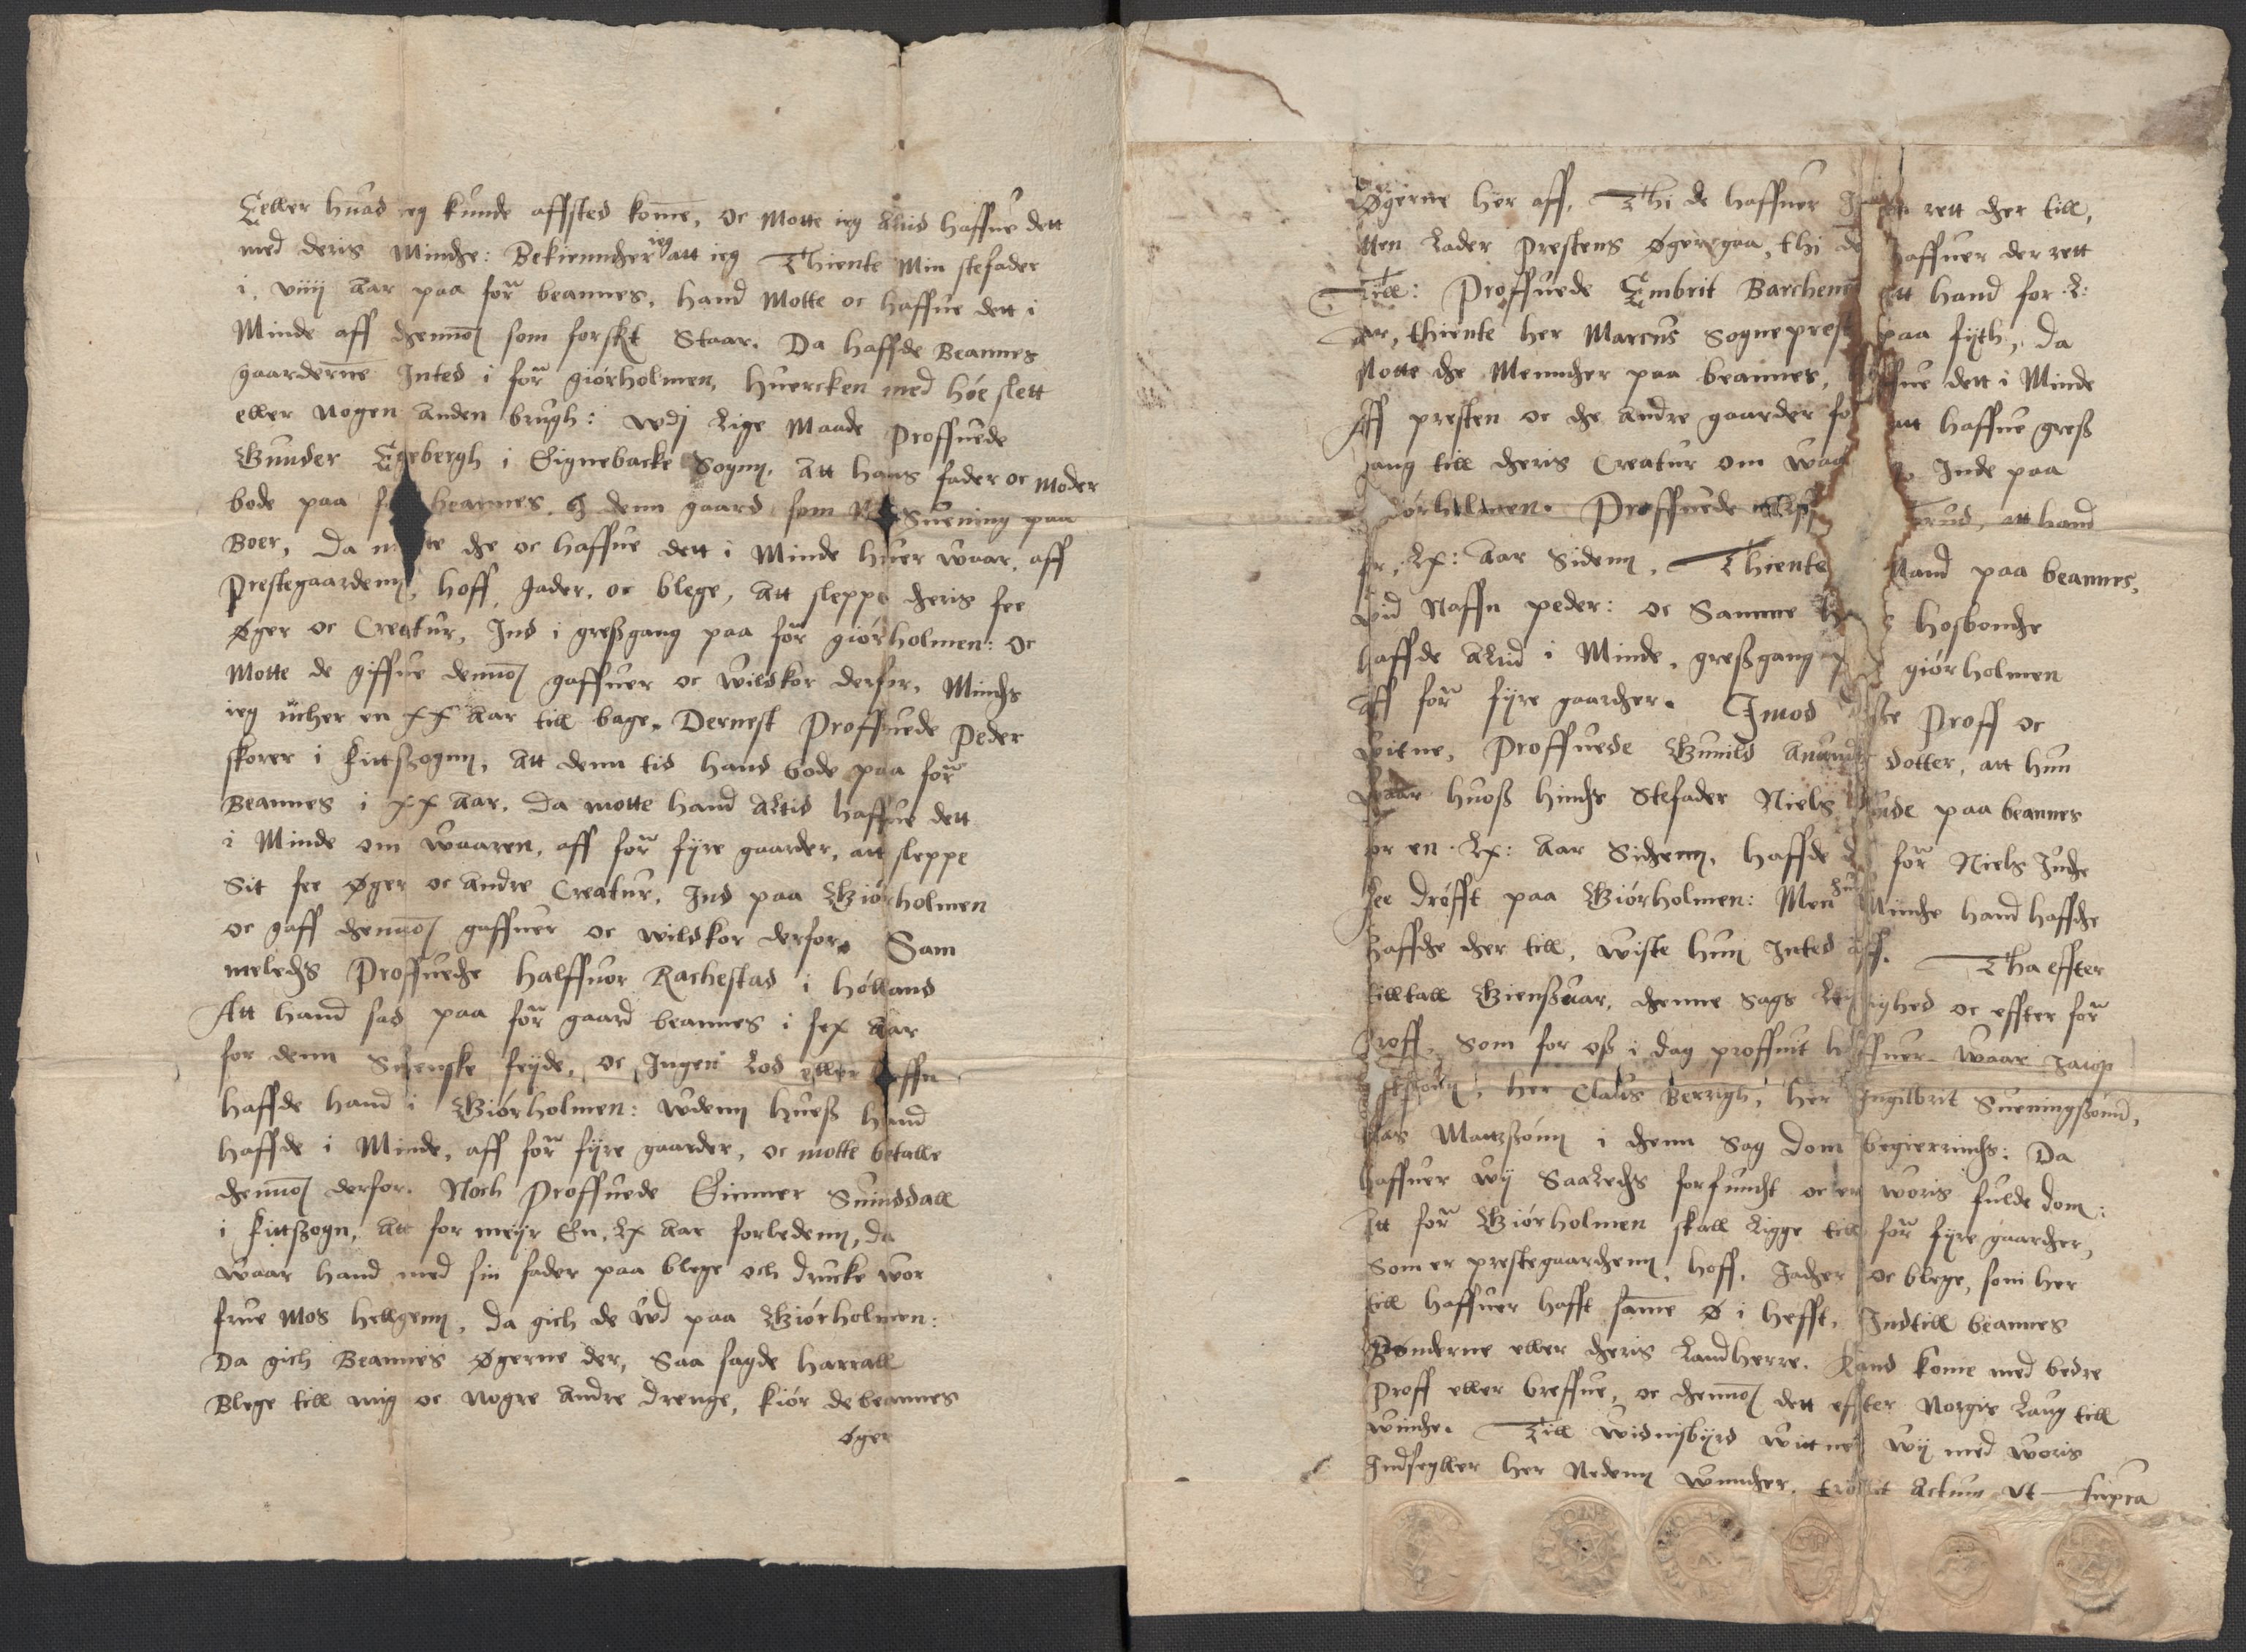 Eeller huad ieg kunde affsted kome, oc Motte ieg altid haffue dett
med deris Mindhe: Bekiendher ieg att ieg Thiente Min stefader
i. viiij aar paa for beannes, hand Motte oc haffue dett i
Minde aff dhennom som forskt Staar. Da haffde Beannes
gaarderne Inted i for giórholmen, huercken med høe slett
eller nogen anden brugh: wdj Lige Maade Proffuede
Gunder Egebergh i Eignebacke Sogenn, att hans fader oc Moder
bode paa beannes, denn gaard som Suening paa
Boer, Da dhe oc haffue dett i Minde huer waar, aff
Prestegaardenn, hoff, Jader, oc blege, att sleppe dheris fee
øger oc Creatur, Ind i greßgang paa for giórholmen: oc
Motte de giffue dennom gaffuer oc wildkor derfor, Mindhs
ieg icher en xx aar till bage. Dernest Proffuede Peder
skorer i fittßogenn, att denn tid hand bode paa for
Beannes i xx aar, da motte hand altid haffue dett
i Minde om waaren, aff for fyre gaarder, att sleppe
Sit fee øger oc andre Creatur, Ind paa Giórholmen
oc gaff dhennom gaffuer oc wildkor derfor. Sam
meledhs Proffuedhe halffuor Rachestad i hólland
Att hand sad paa for gaard beannes i sex aar
for denn Suenske feyde, oc Ingen Lod eller
haffde hand i Giórholmen: wdenn hueß hand
haffde i Minde, aff for fyre gaarder, oc motte betalle
dhennom derfor. Noch Proffuede Einner Suinddall
i fittßogn, att for meyr En. Lx aar forledenn, da
waar hand med sin fader paa blege och drucke wor
frue Mos helligenn, da gich de wd paa Giórholmen:
Da gich Beannes øgerne der, Saa sagde harrall
Blege till mig oc nogre andre drenge, kiór de beannes
øger
øgerne her aff, Thi de haffuer rett dher till,
Men Lader Prestens øgere gaa, thi de haffuer der rett
Till: Proffuede Embrit Barchenn att hand for L:
aar, thiente her Marcus Sogneprest paa fyth, da
Motte dhe Mendher paa beannes, haffue dett i Minde
Aff presten oc dhe andre gaarder for att haffue greß
gang till dheris Creatur om waar Inde paa
giórholmen. Proffuede att hand
for, Lx: aar Sidenn, Thiente Mand paa beannes,
vid Naffn peder: oc Samme hosbondhe
haffde altid i Minde, greßgang giórholmen
aff for fyre gaardher. Imod Proff oc
witne, Proffuede Gunild dotter, att hun
waar huoß hindhe Stefader Niels paa beannes
for en Lx: aar Sidhenn, haffde for Niels Indhe
fee drófft paa Giórholmen: Men hues Mindhe hand haffdhe
haffdhe dher till, wiste hun Inted aff. Tha effter
tilltall Giensuar, dhenne Sags Leylighed oc effter for
Proff, Som for oß i dag proffuit haffuer waar Jacop
her Claus Berrigh, her Ingilbrit Sueningßónd,
Mattzßónn i dhenn Sag dom begierindhs: Da
haffuer wy Saaledhs forfundht oc er woris fulde dom:
Att for Giórholmen skall Ligge till for fyre gaardher,
Som er prestegaardhenn, hoff, Jadher oc blege, som her
till haffuer hafft same ø i hefft, Indtill beannes
Bónderne eller dheris Landherre, kand kome med bedre
Proff eller breffue, oc dhennom dett effter Norgis Laug till
windhe. Till widnisbyrd wittne wy med woris
Indseyller her Nedenn wndher, tróckt Actum vt supra